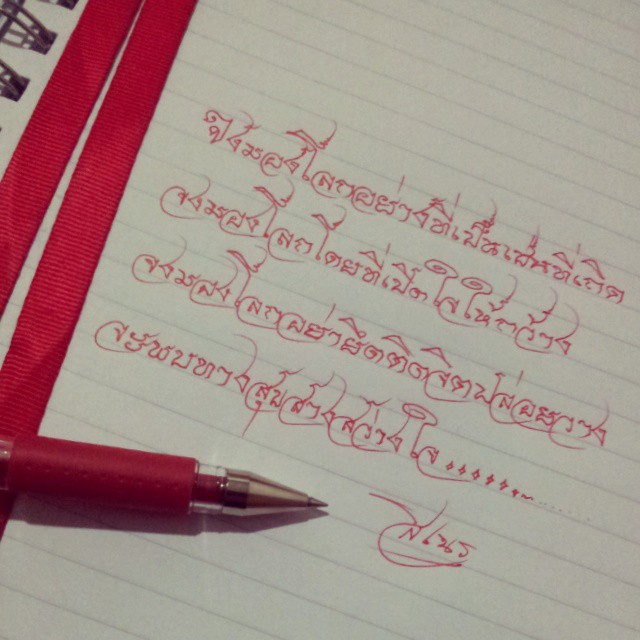 จงมองโลกอย่างที่เป็นเช่นที่เกิด
จงมองโลกโดยที่เปิดใจให้กว้าง
จงมองโลกอย่าผิดติดจิตปล่อยวาง
จะพบทางสุขสว่างสว่างใจ,,,,,,.......